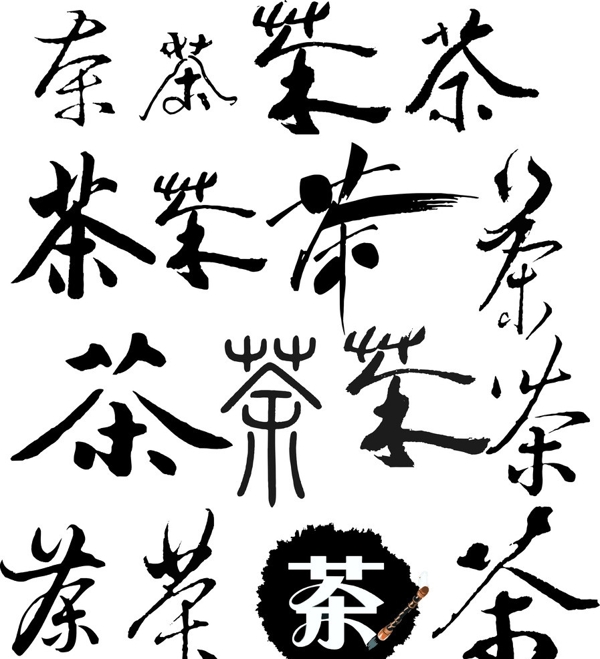 茶 茶 茶 茶
茶 茶 茶 茶
茶 茶 茶 茶
茶 茶 茶 茶